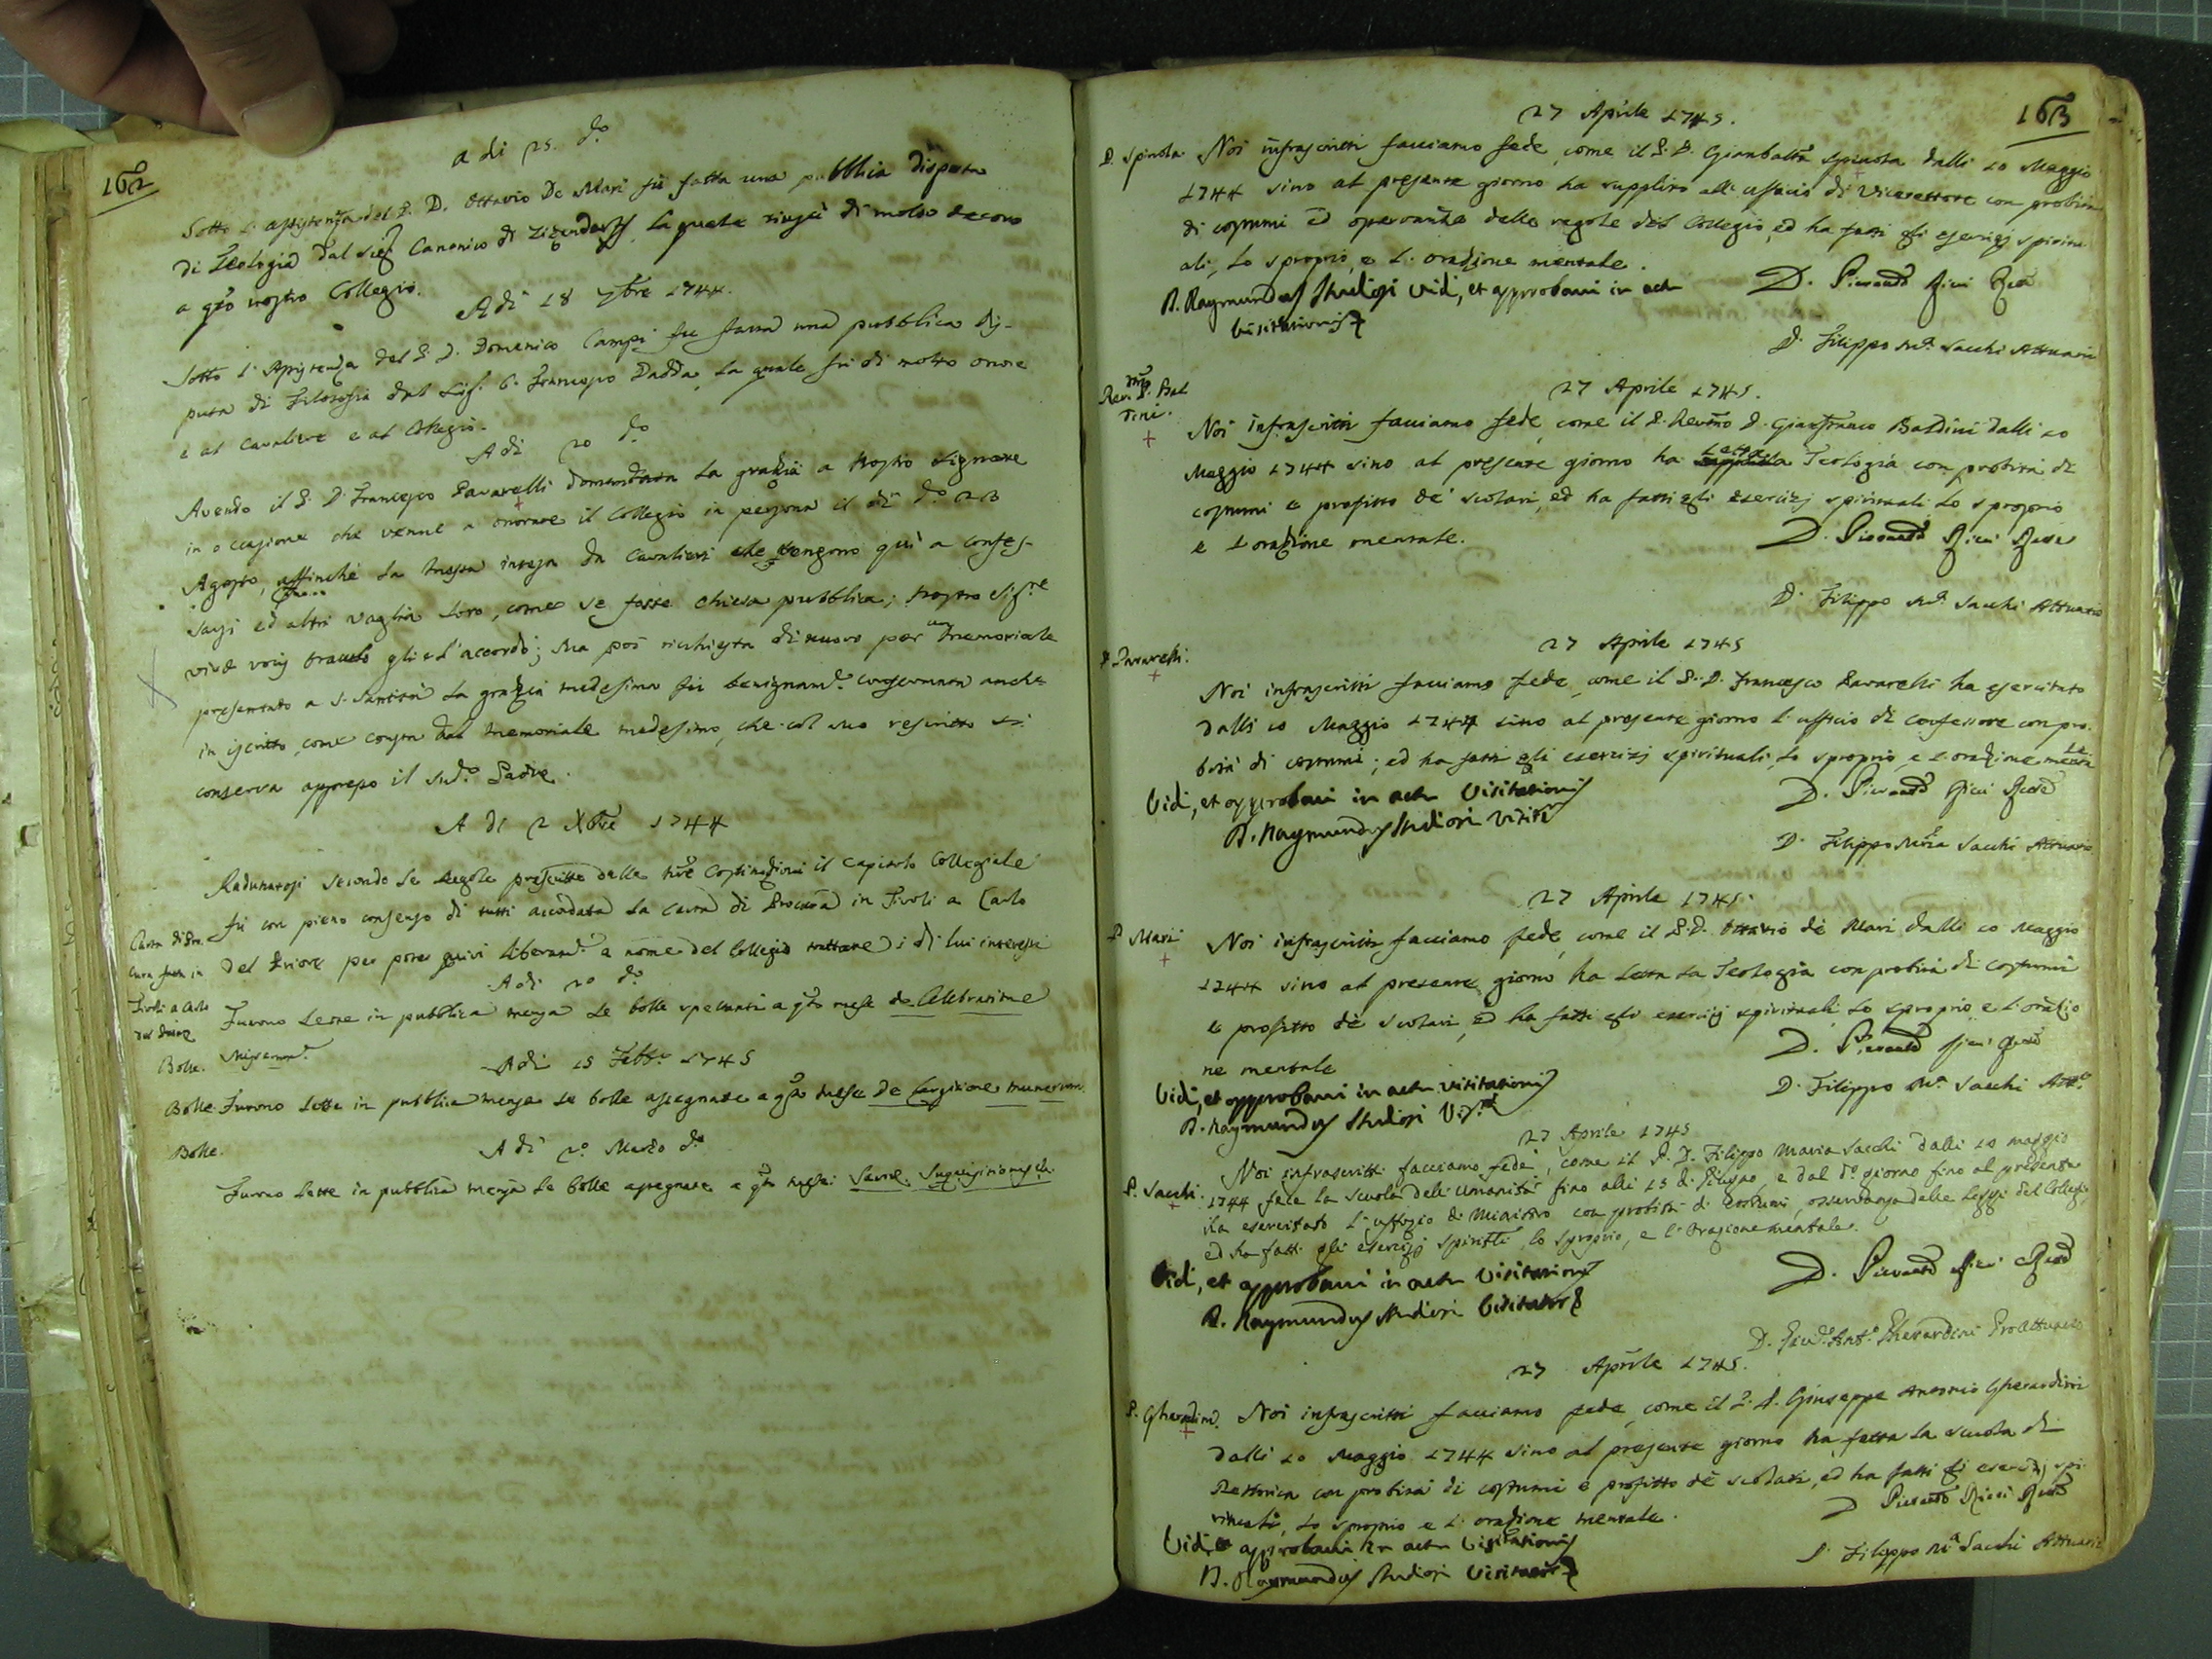 162
a di 25. do
Sotto l'assistenza del P. D. Ottavio De Mari fù fatta una pubblica disputa
di Teologia dal Sigr Canonico di la quale riuscì di molto decoro
a qto nostro Collegio.
Adi 18 7bre 1744.
Sotto l'assistenza del P. D. Domenico Campi fu fatta una pubblica dis-
puta di Filosofia dal Sigr C. Francesco Dadda, la quale fu di molto onore
e al Cavaliere e al Collegio.
Adi 20 do
Avendo il P. D. Francesco Pavarelli domandata la grazia a Nostro Signore
in occasione che venne a onorare il Collegio in persona il dì do 23
Agosto, affinché la messa intesa da Cavalieri che vengono quì a confes-
sarsi ed altri vaglia loro, come se fosse chiesa pubblica; Nostro Sigre
vivæ vocis gliel'accordò; ma poi richiesta di nuovo per un memoriale
presentato a S. Santità la grazia medesima fù benignamte confermata anche
in iscritto, come consta dal memoriale medesimo, che col suo rescritto si
conserva appresso il sudo Padre.
A di 2 Xbre 1744
Radunatosi secondo le regole prescritte dalle nre Costituzioni il Capitolo Collegiale
fù con pieno consenso di tutti accordata la carta di Procura in Tivoli a Carlo
Carta di Pro-
cura fatta in
Tivoli a Carlo
del Priore
del Priore per poter quivi liberamte a nome del Collegio trattare i di lui interessi
Adi 20 do
Bolle.
Furono lette in pubblica mensa le bolle spettanti a qto mese de Celebratione
Missarum.
Adi 15 Febbr 1745
Bolle. Furono lette in pubblica mensa le bolle assegnate a qto mese De Largitione munerum.
Adi 20 Marzo do
Bolle.
Furno lette in pubblica mensa le bolle assegnate a qto mese: Sacræ Inquisitionis &c.
163
27 Aprile 1745.
P. Spinola. Noi infrascritti facciamo fede, come il P. D. Giambatta Spinola dalli 10 Maggio
1744 sino al presente giorno ha supplito all'ufficio di Vicerettore con probità
di costumi ed osservanza delle regole del Collegio, ed ha fatti gli esercizj spiritu-
ali, lo sproprio, e l'orazione mentale.
D. Raymundus Studiosi Vidi, et approbavi in actu
Visitationis
D. Ricci Rettore
D. Filippo Ma Sacchi Attuario
27 Aprile 1745.
Rev. P. Bal
dini.
Noi infrascritti facciamo fede, come il P. Revmo D. Gianfranco Baldini dalli 10
Maggio 1744 sino al presente giorno ha Letta Teologia con probità di
costumi e profitto de' scolari, ed ha fatti gli esercizj spirituali lo sproprio
e l'orazione mentale.
D. Ricci Rettore
D. Filippo Ma Sacchi Attuario
27 Aprile 1745
P. Pavarelli.
Noi infrascritti facciamo fede, come il P. D. Francesco Pavarelli ha esercitato
dalli 10 Maggio 1744 sino al presente giorno l'ufficio di Confessore con pro-
bità di costumi; ed ha fatti gli esercizj spirituali, lo sproprio, e l'orazione mentale
Vidi, et approbavi in actu Visitationis
D. Raymundus Studiosi Visitr
D. Ricci Rettore
D. Filippo Maria Sacchi Attuario
27 Aprile 1745.
P. Mari
Noi infrascritti facciamo fede, come il P. D. Ottavio de Mari dalli 10 Maggio
1744 sino al presente giorno ha letta la Teologia con probità di costumi
e profitto de scolari, ed ha fatti gli esercizj spirituali lo sproprio e l'orazio
ne mentale
Vidi, et approbavi in actu Visitationis
D. Raymundus Studiosi Visr
D. Ricci Rettore
D. Filippo Ma Sacchi Atto
27 Aprile 1745
P. Sacchi.
Noi infrascritti facciamo fede, come il P. D. Filippo Maria Sacchi dalli 10 maggio
1744 fece la scuola dell'Umanità fino alli 15 di Giugno, e dal do giorno fino al presente
ha esercitato l'uffizio di Ministro con probità di costumi, osservanza delle Leggi del Collegio
ed ha fatti gli esercizj spiritli lo sproprio, e l'orazione mentale.
Vidi, et approbavi in actu Visitationis
D. Raymundus Studiosi Visitator
D. Ricci Rettore
D. Giuse Anto Gherardini ProAttuario
27 Aprile 1745.
P. Gherardini. Noi infrascritti facciamo fede, come il P. D. Giuseppe Antonio Gherardini
dalli 10 Maggio 1744 sino al presente giorno ha fatta la scuola di
Rettorica con probità di costumi e profitto de scolari, ed ha fatti gli esercizj spi-
rituali, lo sproprio e l'orazione mentale.
Vidi, et approbavi in actu Visitationis
D. Raymundus Studiosi Visitator
D. Ricci Rettore
D. Filippo Ma Sacchi Attuario